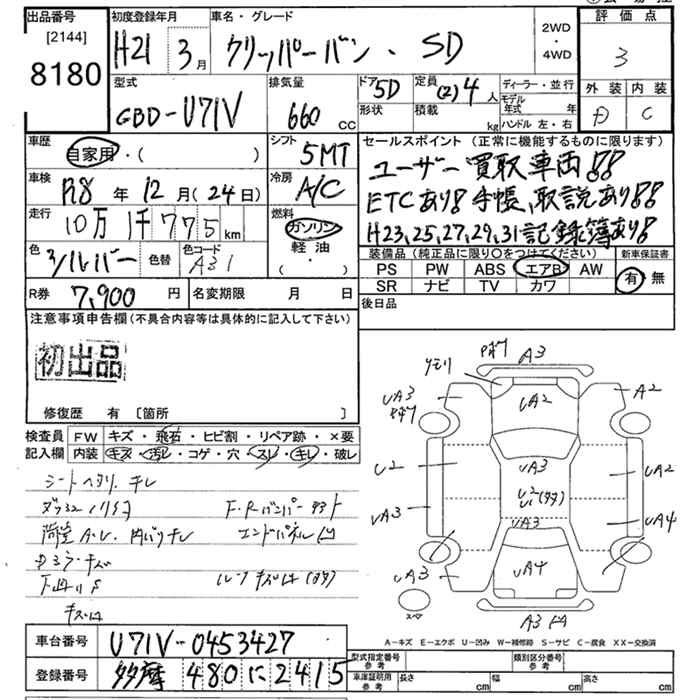 出品番号
[2144]
8180
初度登録年月
H21 3月
車名・グレード
クリッパーバン・SD
2WD
・
4WD
評価点
3
外装 内装
D C
型式
GBD-U71V
排気量
660 cc
ドア 5D
形状
定員 (2)4人
積載 kg
ディーラー・並行
モデル年式 年
ハンドル 左・右
車歴
自家用・( )
シフト
5MT
車検
R8年12月(24日)
冷房
A/C
走行
10万1千775km
燃料
ガソリン
軽油
・( )・
色
シルバー
色替
色コード
A31
R券
7,900円
名変期限 月 日
セールスポイント (正常に機能するものに限ります)
ユーザー買取車両!!
ETCあり!手帳、取説あり!!
H23,25,27,29,31記録簿あり!
装備品(純正品に限り○をつけてください)
新車保証書
PS PW ABS エアB AW
SR ナビ TV カワ
有・無
後日品
注意事項申告欄(不具合内容等は具体的に記入して下さい)
初出品
修復歴 有 〔箇所 〕
検査員記入欄
FW キズ・飛石・ヒビ割・リペア跡・×要
内装 キズ・汚レ・コゲ・穴・スレ・キレ・破レ
シートヘタリ、キレ
F・Rバンパーキズ
エンドパネル凹
キズ
A3
UA3
UA2
A2
U2
UA3
UA2
UA3
UA3
UA4
UA3
UA4
スペア
A3
A-キズ E-エクボ U-凹み W-補修跡 S-サビ C-腐食 XX-交換済
車台番号
U71V-0453427
登録番号
多摩 480 に 2415
型式指定番号 参考
類別区分番号 参考
車庫証明用 参考
長さ cm 幅 cm 高さ cm